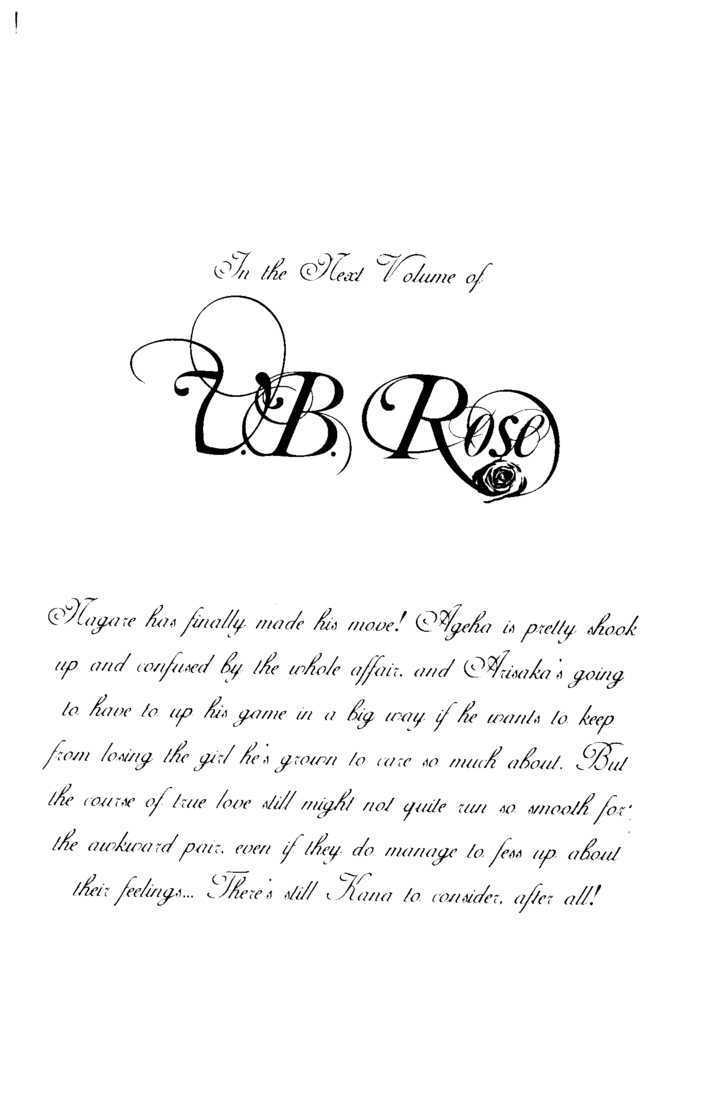 In the Next Volume of
V.B. Rose
Nagare has finally made his move! Ageha is pretty shook
up and confused by the whole affair, and Arisaka's going
to have to up his game in a big way if he wants to keep
from losing the girl he's grown to care so much about. But
the course of true love still might not quite run so smooth for
the awkward pair, even if they do manage to fess up about
their feelings... There's still Kana to consider, after all!